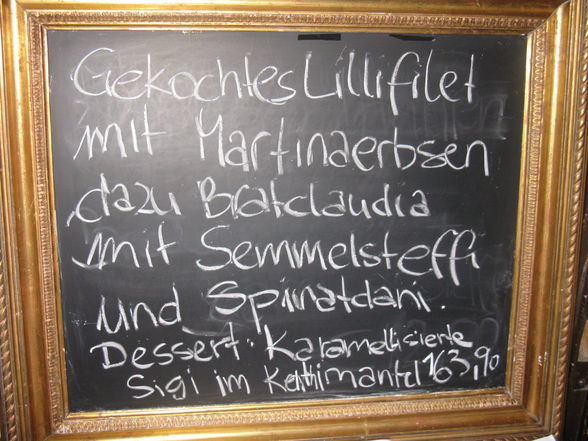 Gekochtes Lillifilet
mit Martinaerbsen
dazu Bratclaudia
mit Semmelsteffi
und Spinatdani.
Dessert: Karamellisierte
Sigi im Kathimantel 163,90